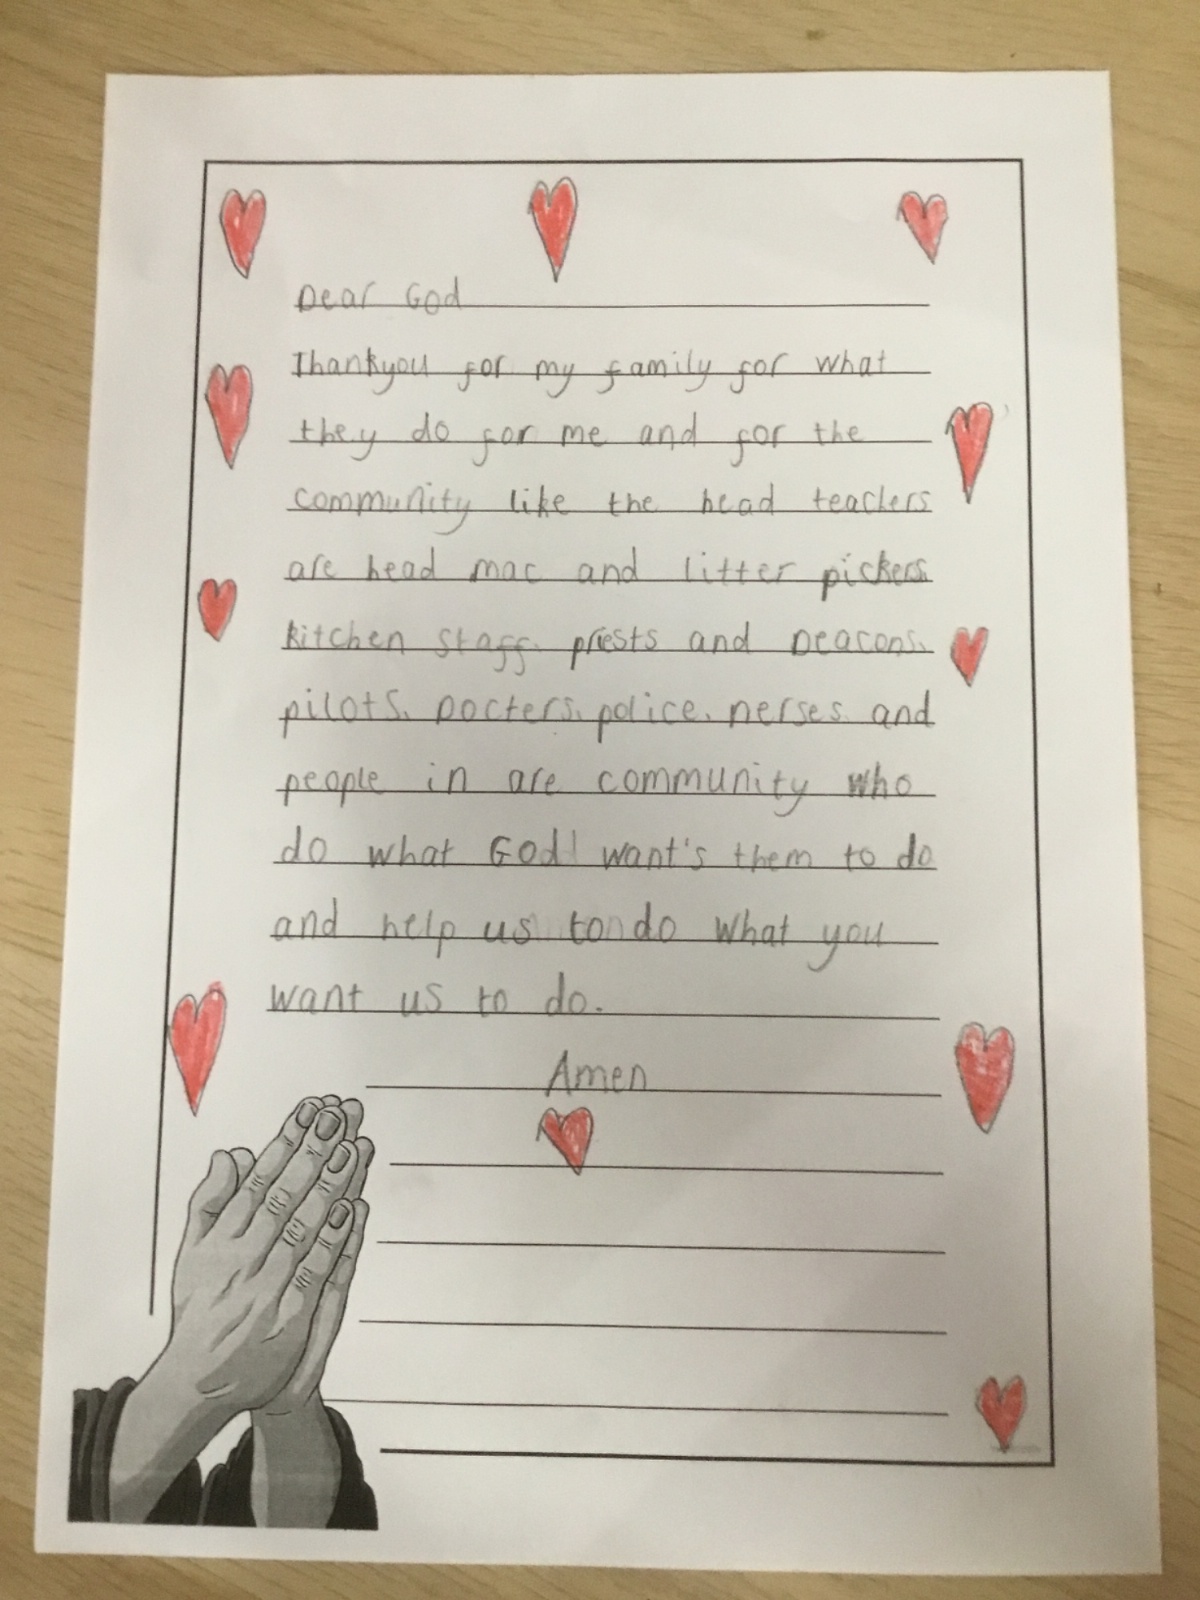 Dear God
Thankyou for my family for what
they do for me and for the
community like the head teachers
are head mac and litter pickers
kitchen staff. priests and Deacons.
pilots. Docters. police. nerses. and
people in are community who
do what God want's them to do
and help us to do what you
want us to do.
Amen